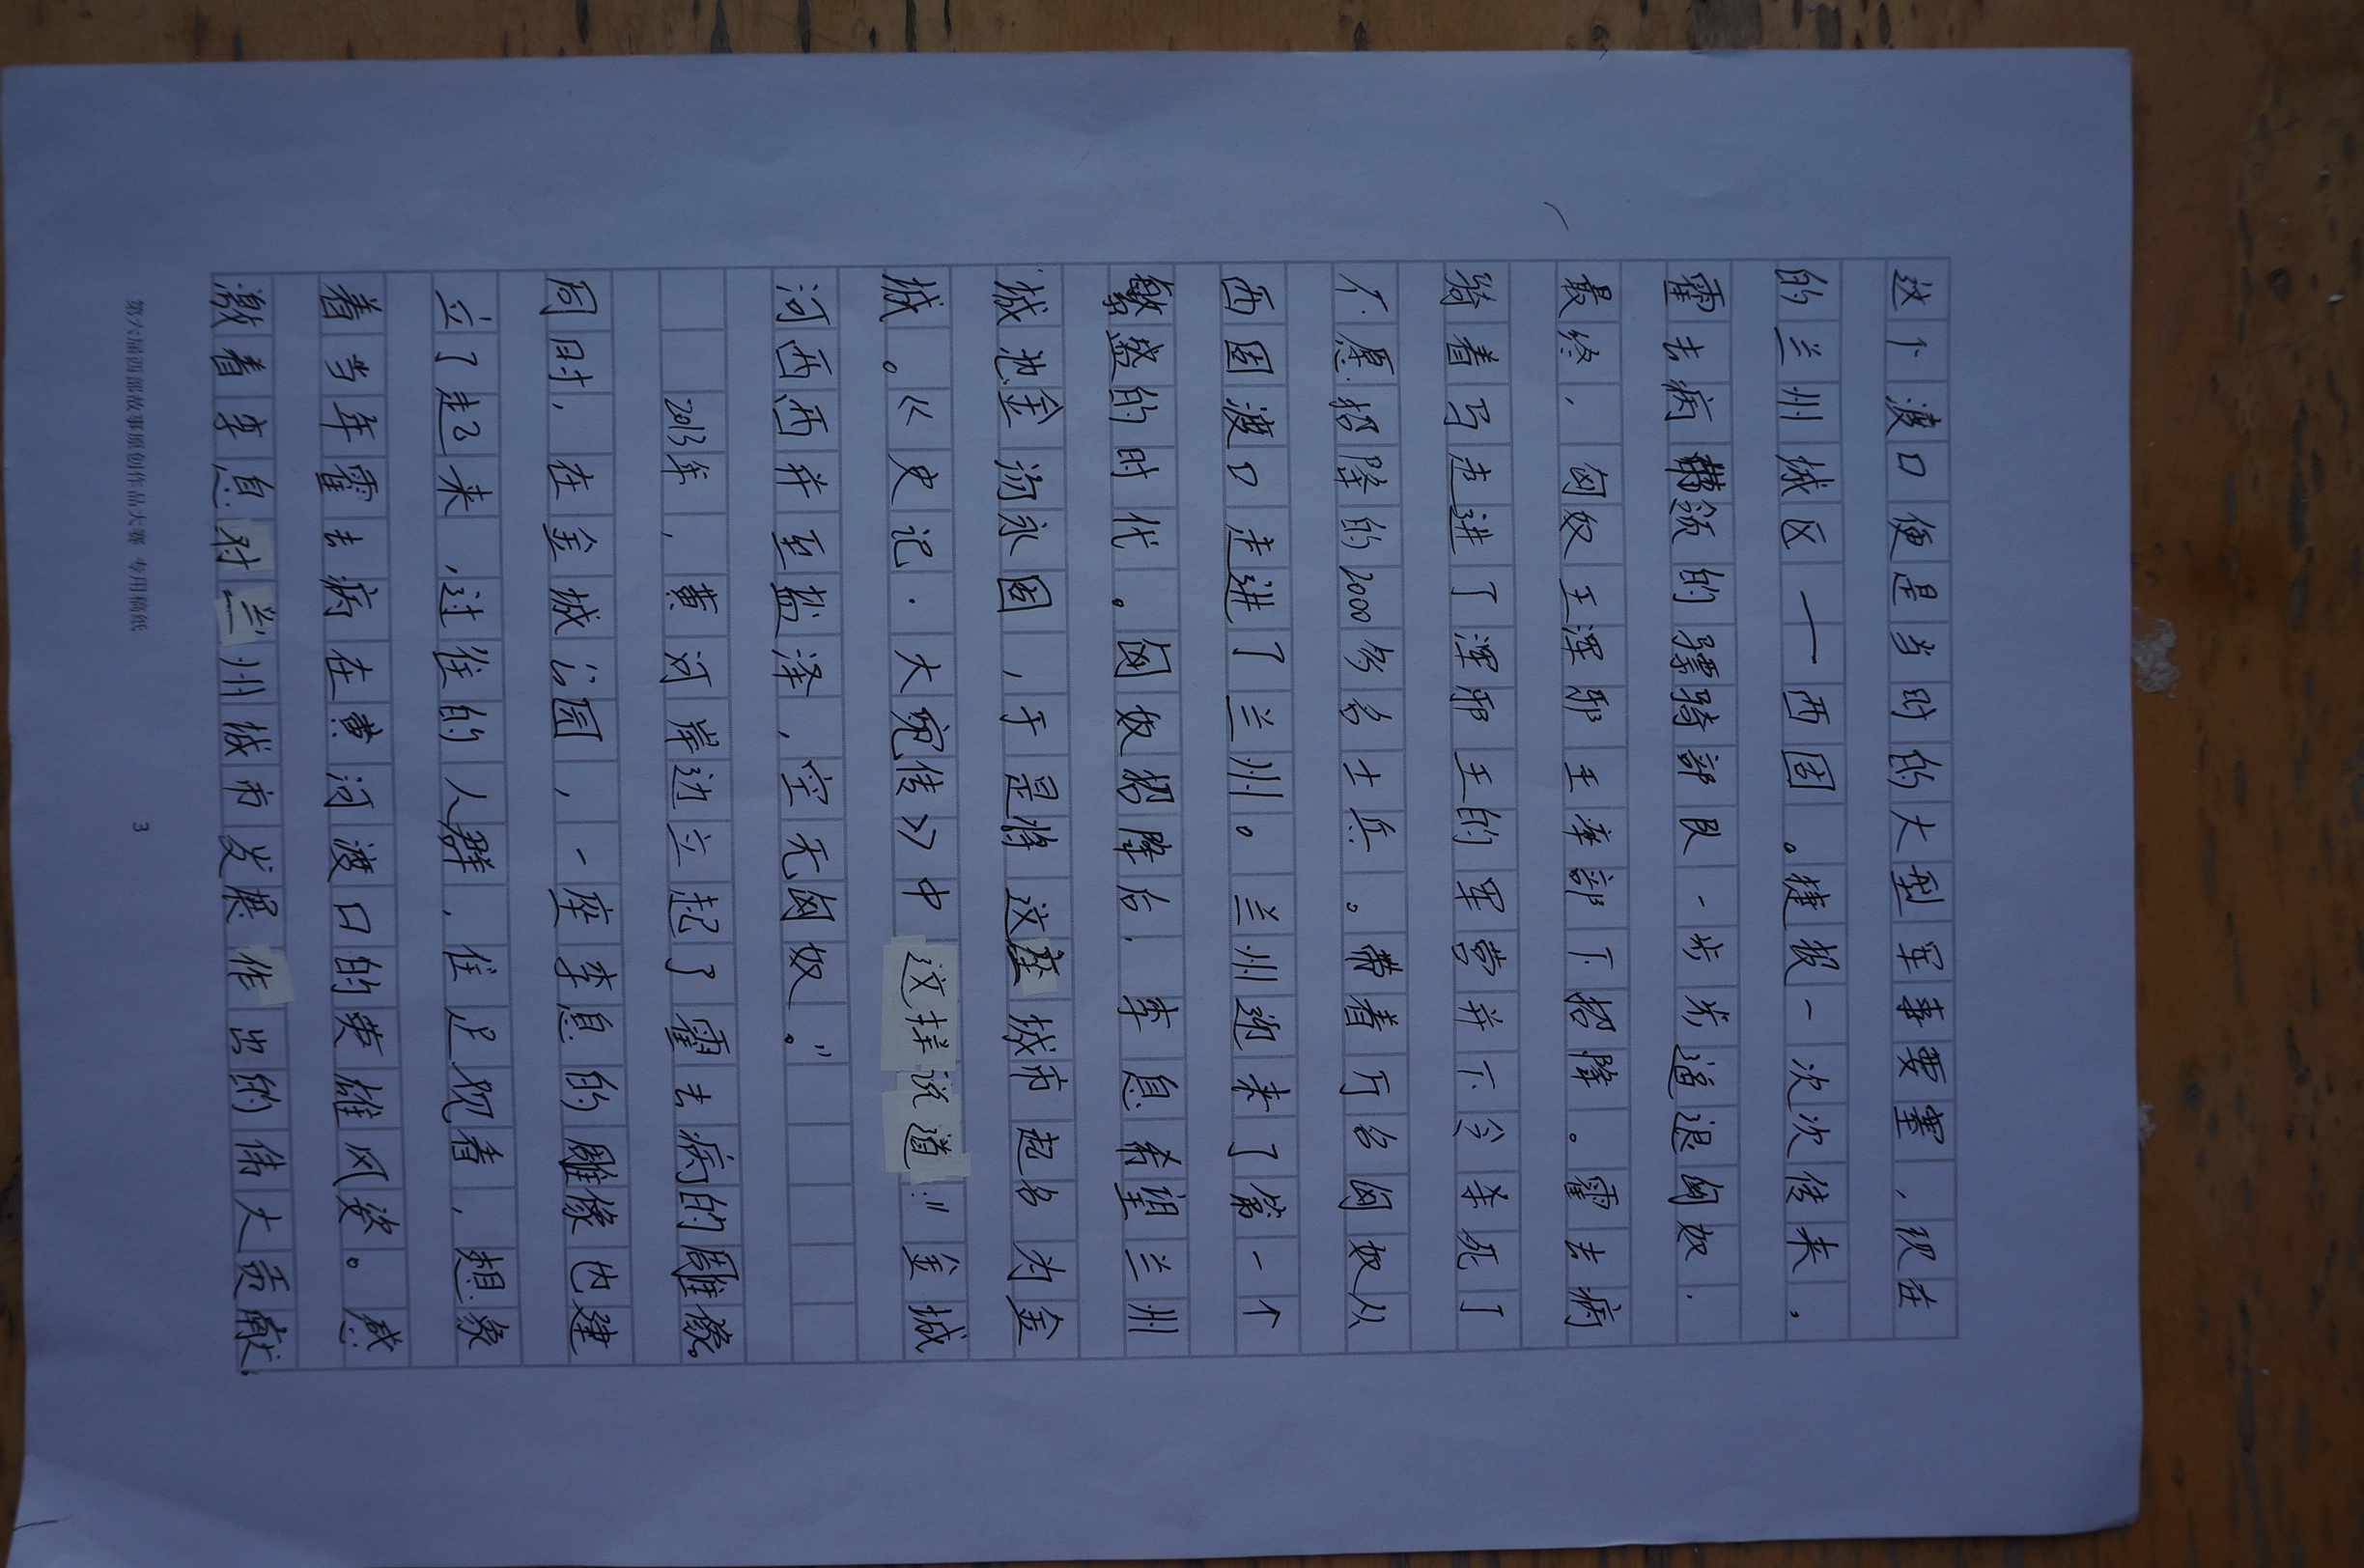 这个渡口便是当时的大型军事要塞，现在
的兰州城区——西固。捷报一次次传来，
霍去病带领的骠骑部队一步步逼退匈奴.
最终，匈奴王浑邪王率部下招降。霍去病
骑着马走进了浑邪王的军营并下令杀死了
不愿招降的2000多名士兵。带着万名匈奴从
西固渡口走进了兰州。兰州迎来了第一个
繁盛的时代。匈奴招降后，李息希望兰州
城池金汤永固，于是将这座城市起名为金
城。《史记·大宛传》中这样说道：“金城
河西西并至盐泽，空无匈奴。”
2013年，黄河岸边立起了霍去病的雕像。
同时，在金城公园，一座李息的雕像也建
立了起来，过往的人群，住足观看，想象
着当年霍去病在黄河渡口的英雄风姿。感
激着李息对兰州城市发展作出的伟大贡献.
第六届西部故事原创作品大赛 专用稿纸
3